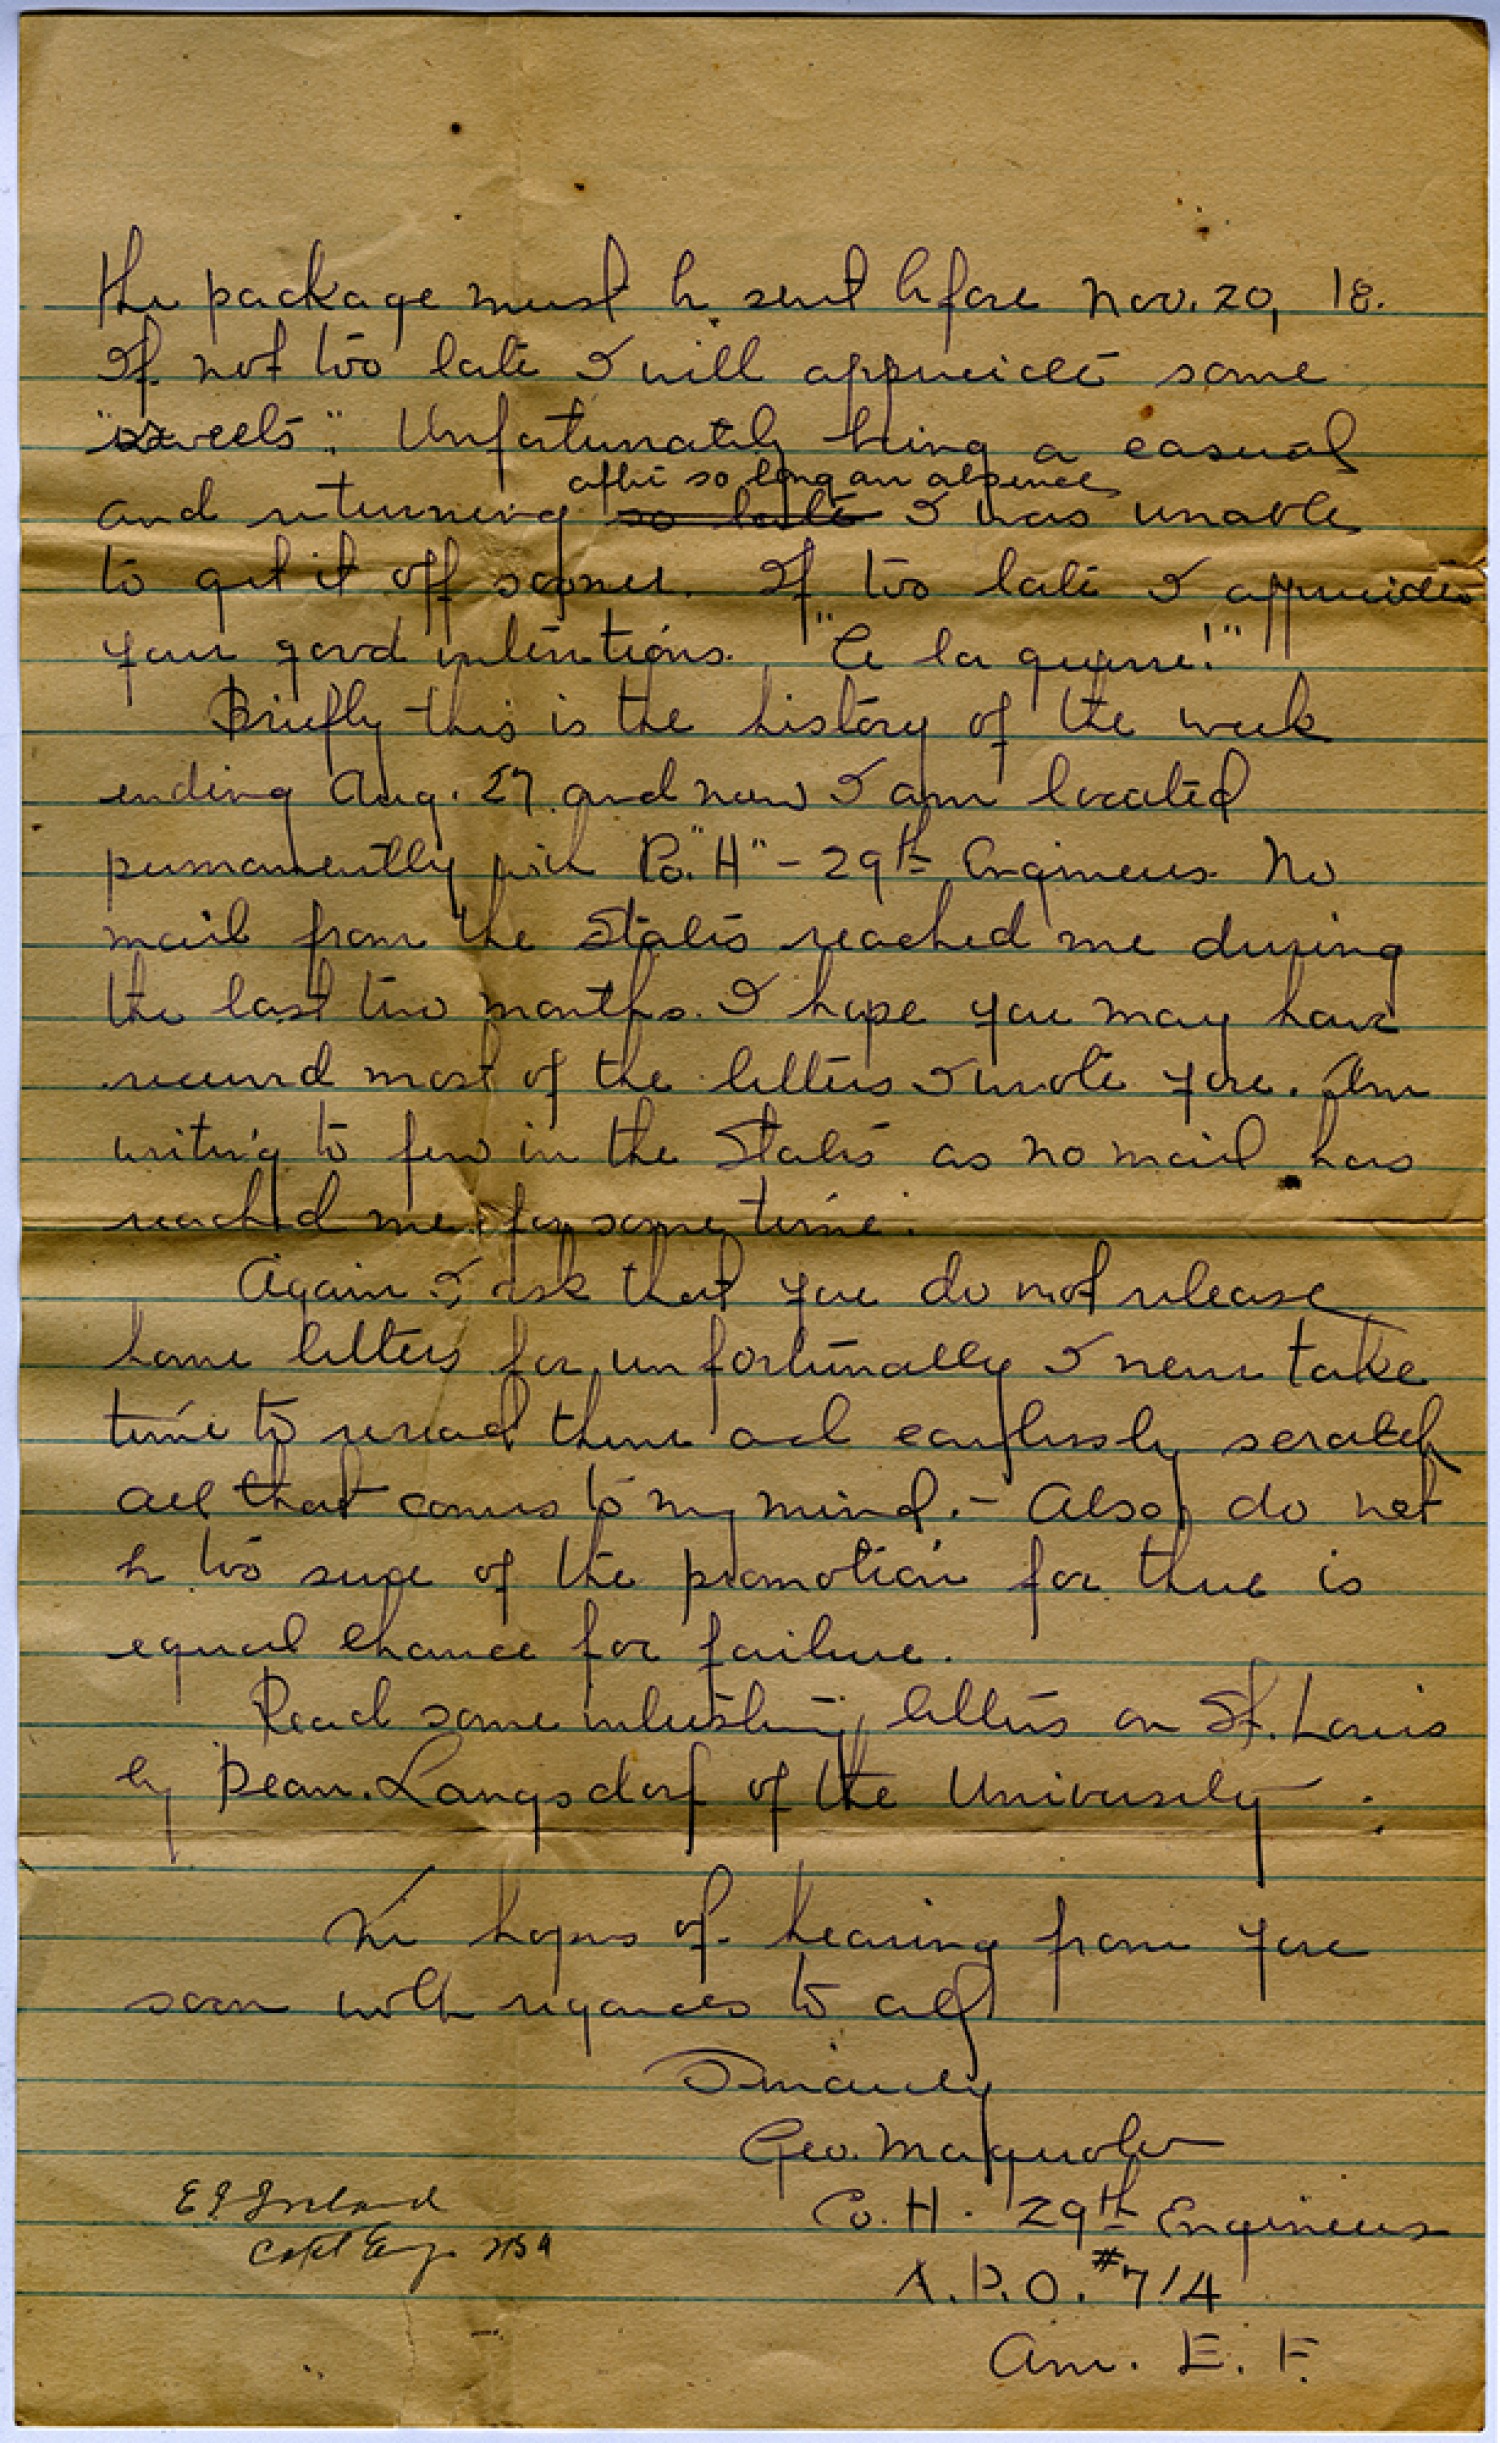 the package must be sent before Nov. 20, 18.
If not too late I will appreciate some
"sweets". Unfortunately being a casual
after so long an absence
and returning so late I was unable
to get it off sooner. If too late I appreciate
your good intentions. "Ce la guerre!"
Briefly this is the history of the week
ending Aug. 27 and now I am located
permanently with Co. "H" - 29th Engineers. No
mail from the States reached me during
the last two months. I hope you may have
received most of the letters I wrote you. Am
writing to few in the States as no mail has
reached me for some time.
Again I ask that you do not release
home letters for unfortunally I never take
time to reread them and carlessly scratch
all that comes to my mind. - Also, do not
be too sure of the promotion for there is
equal chance for failure.
Read some interesting letters on St. Louis
by Dean Langsdorf of the University.
In hopes of hearing from you
soon with regards to all
Sincerely
Geo.
Co. H. 29th Engineers
A.P.O. #714
Am. E. F.
E J Ireland
Capt Eng. USA